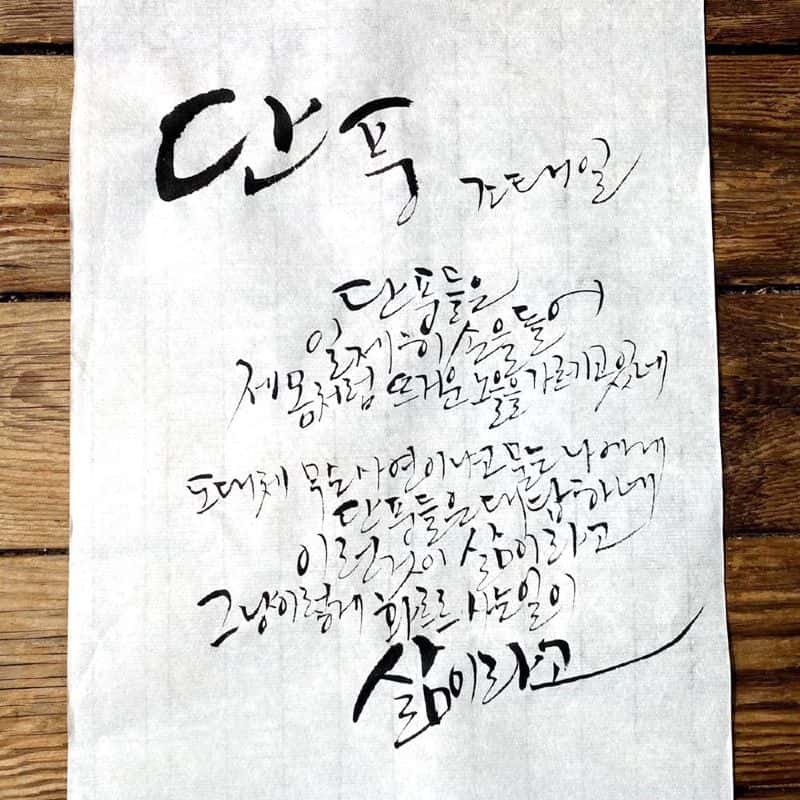 단풍
조태일
단풍들은
일제히 손을 들어
제 몸처럼 뜨거운 노을을 가리고 있네
도대체 무슨 사연이냐고 묻는 나에게
단풍들은 대답하네
이런 것이 삶이라고
그냥 이렇게 화르르 사는 일이
삶이라고